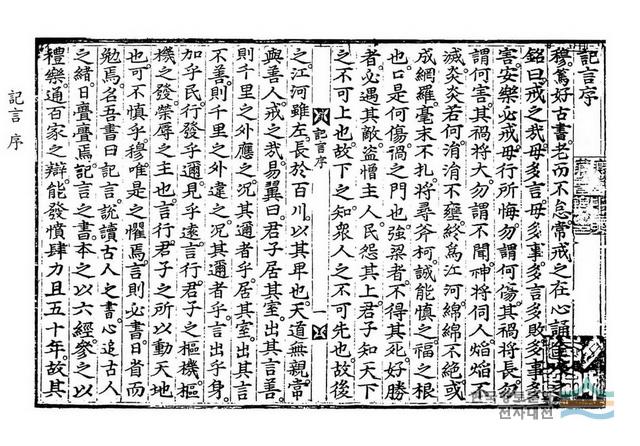 記言序
穆篤好古書老而不怠常戒之在心誦金人之
銘曰戒之哉毋多言毋多事多言多敗多事多
害安樂必戒毋行所悔勿謂何傷其禍將長勿
謂何害其禍將大勿謂不聞神將伺人焰焰不
滅炎炎若何涓涓不壅終爲江河綿綿不絶或
成網羅毫末不扎將尋斧柯誠能愼之福之根
也口是何傷禍之門也強梁者不得其死好勝
者必遇其敵盜憎主人民怨其上君子知天下
之不可上也故下之知衆人之不可先也故後
記言序 一
之江河雖左長於百川以其卑也天道無親常
與善人戒之哉易翼曰君子居其室出其言善
則千里之外應之況其邇者乎居其室出其言
不善則千里之外違之況其邇者乎言出乎身
加乎民行發乎邇見乎遠言行君子之樞機樞
機之發榮辱之主也言行君子之所以動天地
也可不愼乎穆唯是之懼焉言則必書日省而
勉焉名吾書曰記言說讀古人之書心追古人
之緖日亹亹焉記言之書本之以六經參之以
禮樂通百家之辯能發憤肆力且五十年故其
記言 序
전자대전